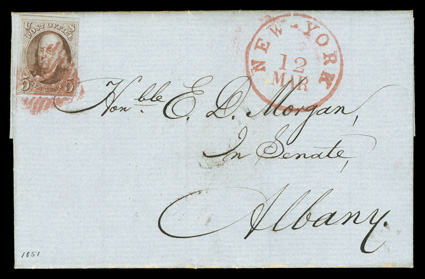 POST OFFICE
5 5
NEW-YORK
12
MAR
Hon.ble E. D. Morgan,
In Senate,
Albany.
1851